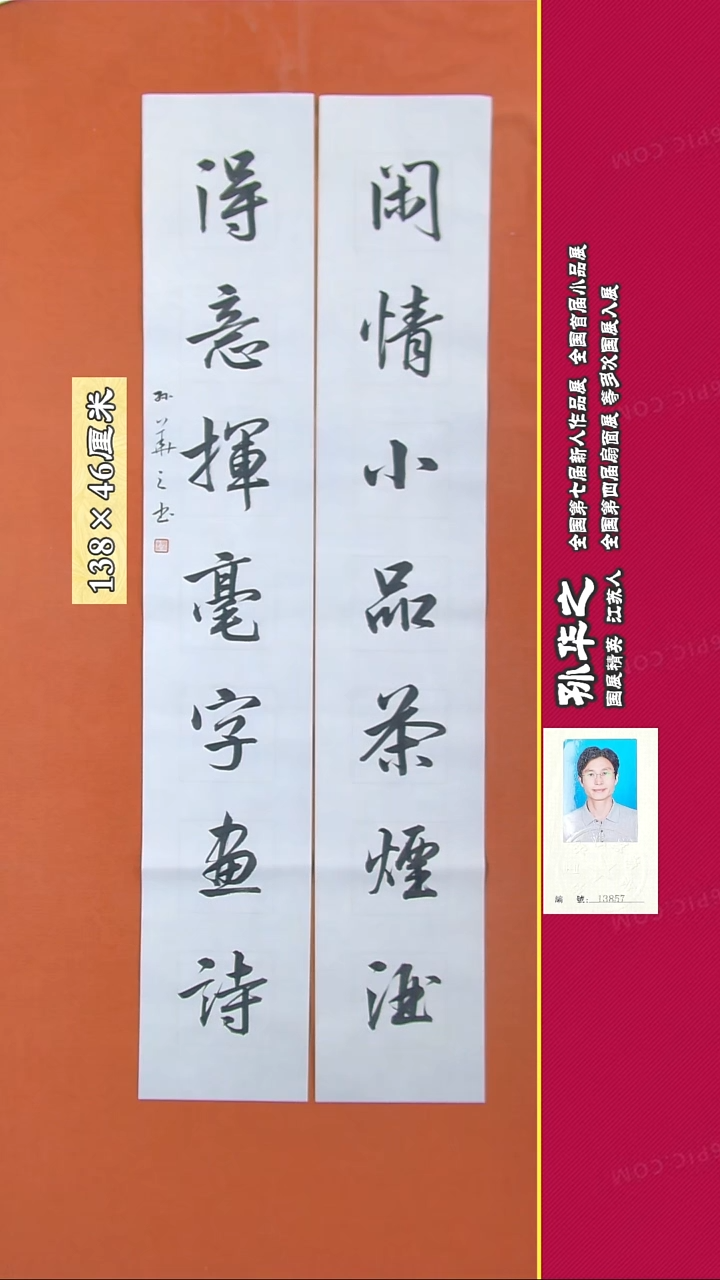 閑情小品茶煙酒
得意揮毫字畫詩
孙華之书
138×46厘米
孙华之
国展精英 江苏人
全国第七届新人作品展 全国首届小品展
全国第四届扇面展 等多次国展入展
編 號: 13857